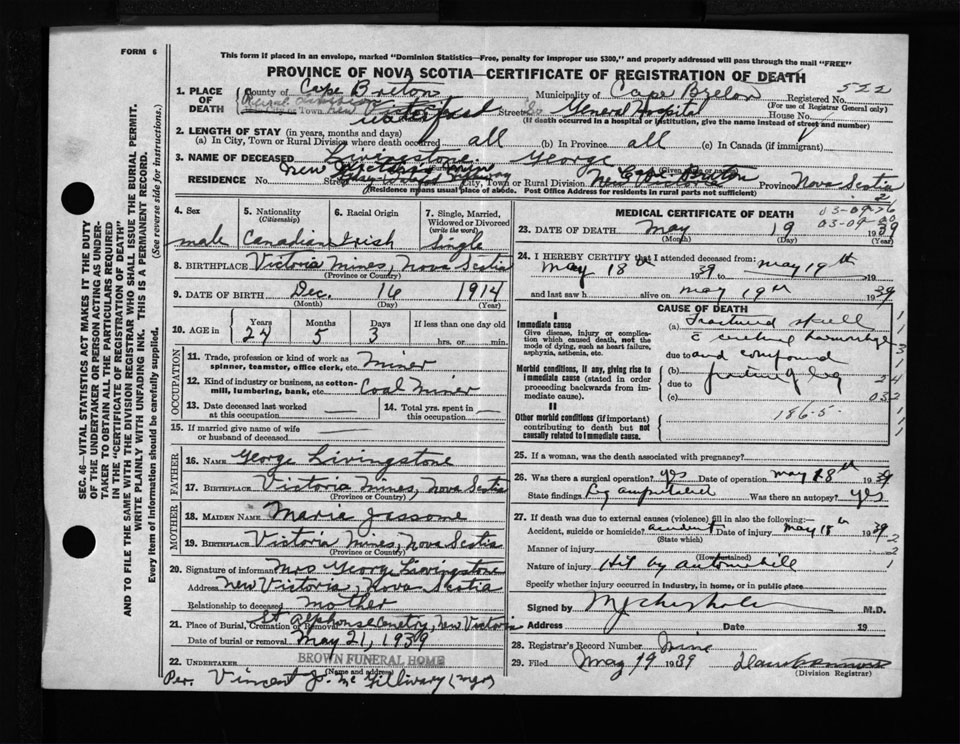 FORM 6
This form if placed in an envelope, marked "Dominion Statistics—Free, penalty for improper use $300," and properly addressed will pass through the mail "FREE"
PROVINCE OF NOVA SCOTIA—CERTIFICATE OF REGISTRATION OF DEATH
1. PLACE OF DEATH County of Cape Breton Municipality of Cape Breton Registered No. 522
(For use of Registrar General only)
Street General Hospital House No.
(If death occurred in a hospital or institution, give the name instead of street and number)
2. LENGTH OF STAY (in years, months and days)
(a) In City, Town or Rural Division where death occurred all (b) In Province all (c) In Canada (if immigrant)
3. NAME OF DECEASED Livingstone George
RESIDENCE No. Street City, Town or Rural Division New Victoria Province Nova Scotia
(Residence means usual place of abode. Post Office Address for residents in rural parts not sufficient)
4. Sex
male
5. Nationality (Citizenship)
Canadian
6. Racial Origin
Irish
7. Single, Married, Widowed or Divorced (write the word)
Single
8. BIRTHPLACE Victoria Mines, Nova Scotia
(Province or Country)
9. DATE OF BIRTH Dec. 16 1914
(Month) (Day) (Year)
10. AGE in Years Months Days If less than one day old
24 5 3 hrs. or min.
OCCUPATION
11. Trade, profession or kind of work as spinner, teamster, office clerk, etc. Miner
12. Kind of industry or business, as cotton-mill, lumbering, bank, etc. Coal Miner
13. Date deceased last worked at this occupation —
14. Total yrs. spent in this occupation —
15. If married give name of wife or husband of deceased —
FATHER
16. NAME George Livingstone
17. BIRTHPLACE Victoria Mines, Nova Scotia
(Province or Country)
MOTHER
18. MAIDEN NAME Marie Jassome
19. BIRTHPLACE Victoria Mines, Nova Scotia
(Province or Country)
20. Signature of informant Mrs George Livingstone
Address New Victoria, Nova Scotia
Relationship to deceased mother
21. Place of Burial, Cremation or Removal St Alphonse Cemetry, New Victoria
Date of burial or removal May 21, 1939
22. UNDERTAKER BROWN FUNERAL HOME
(Name and address)
Per. Vincent J. McGillivary (mgr)
MEDICAL CERTIFICATE OF DEATH
23. DATE OF DEATH May 19 1939
(Month) (Day) (Year)
24. I HEREBY CERTIFY that I attended deceased from:
May 18th 1939 to May 19th 19
and last saw h alive on May 19th 1939
CAUSE OF DEATH
I
Immediate cause
Give disease, injury or complication which caused death, not the mode of dying, such as heart failure, asphyxia, asthenia, etc.
(a) Fractured skull
c cerebral haemorrhage
due to and compound
Morbid conditions, if any, giving rise to immediate cause (stated in order proceeding backwards from immediate cause).
(b)
due to
(c)
II
Other morbid conditions (if important) contributing to death but not causally related to immediate cause.
186-5
25. If a woman, was the death associated with pregnancy?
26. Was there a surgical operation? yes Date of operation May 18th 1939
State findings Leg amputated Was there an autopsy? yes
27. If death was due to external causes (violence) fill in also the following:—
Accident, suicide or homicide? accident Date of injury May 18th 1939
(State which)
Manner of injury
(How sustained)
Nature of injury Hit by automobile
Specify whether injury occurred in industry, in home, or in public place
Signed by M.D.
Address Date 19
28. Registrar's Record Number Nine
29. Filed May 19 1939
(Division Registrar)
SEC. 46—VITAL STATISTICS ACT MAKES IT THE DUTY
OF THE UNDERTAKER OR PERSON ACTING AS UNDERTAKER TO OBTAIN ALL THE PARTICULARS REQUIRED
IN THE "CERTIFICATE OF REGISTRATION OF DEATH"
AND TO FILE THE SAME WITH THE DIVISION REGISTRAR WHO SHALL ISSUE THE BURIAL PERMIT.
WRITE PLAINLY WITH UNFADING INK. THIS IS A PERMANENT RECORD.
Every item of information should be carefully supplied. (See reverse side for instructions.)